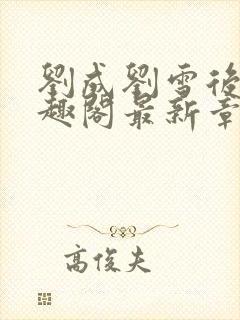 劉成劉雪後
趣閣最新章
高俊夫